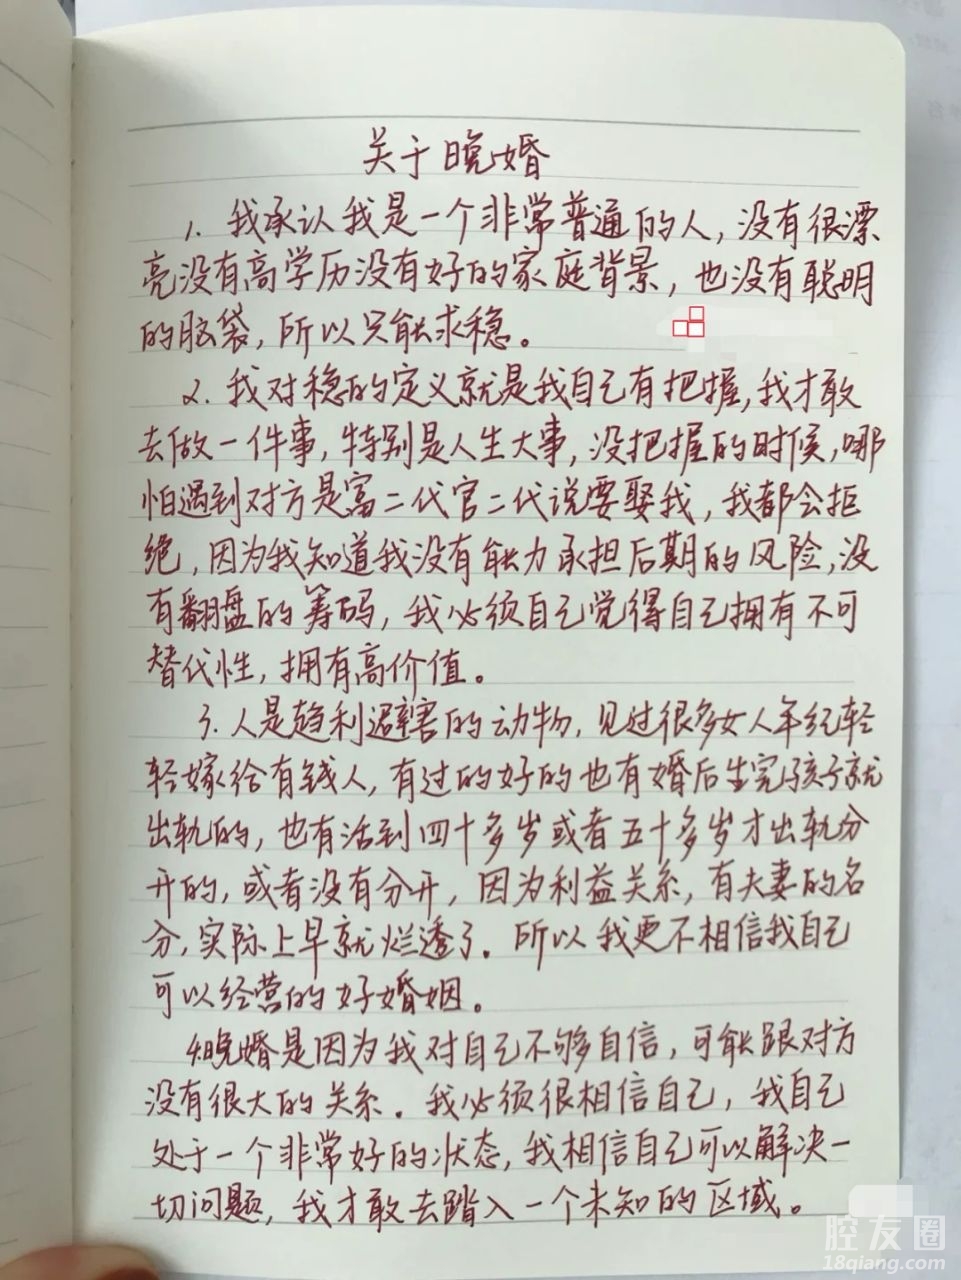 关于晚婚
1. 我承认我是一个非常普通的人，没有很漂
亮没有高学历没有好的家庭背景，也没有聪明
的脑袋，所以只能求稳。
2. 我对稳的定义就是我自己有把握，我才敢
去做一件事，特别是人生大事，没把握的时候，哪
怕遇到对方是富二代官二代说要娶我，我都会拒
绝，因为我知道我没有能力承担后期的风险，没
有翻盘的筹码，我必须自己觉得自己拥有不可
替代性，拥有高价值。
3. 人是趋利避害的动物，见过很多女人年纪轻
轻嫁给有钱人，有过的好的也有婚后生完孩子就
出轨的，也有活到四十多岁或者五十多岁才出轨分
开的，或者没有分开，因为利益关系，有夫妻的名
分，实际上早就烂透了。所以我更不相信我自己
可以经营的好婚姻。
4.晚婚是因为我对自己不够自信，可能跟对方
没有很大的关系。我必须很相信自己，我自己
处于一个非常好的状态，我相信自己可以解决一
切问题，我才敢去踏入一个未知的区域。
腔友圈
18qiang.com